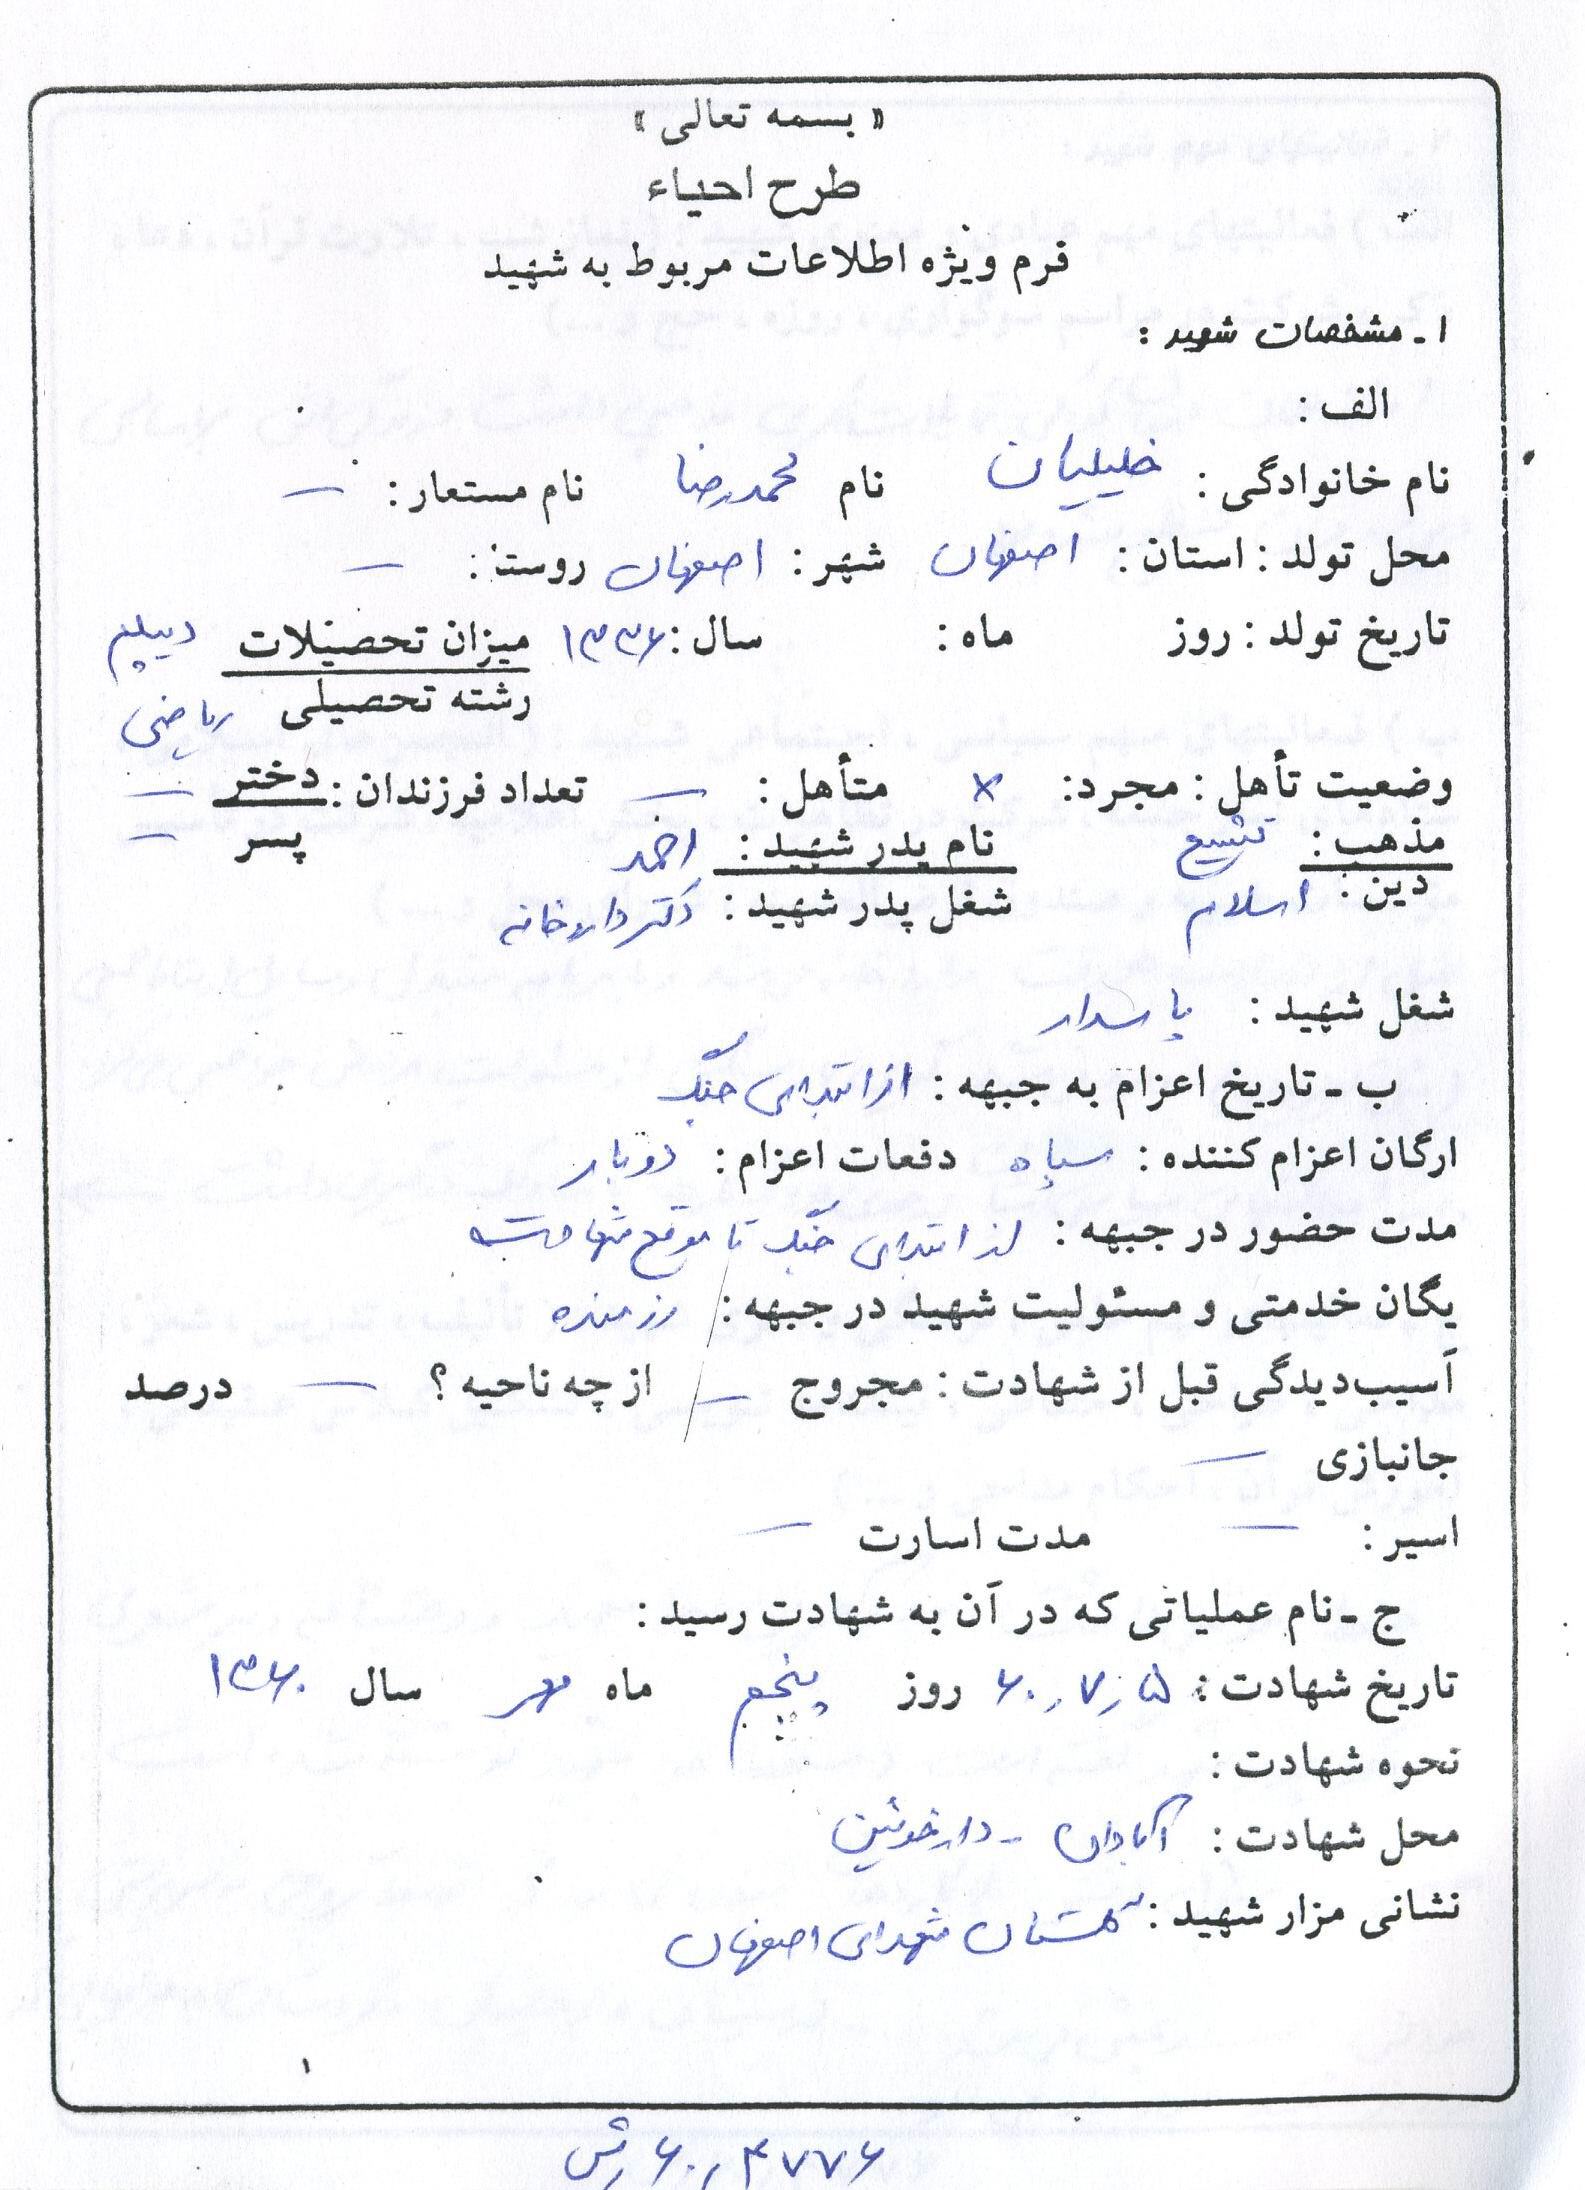 « بسمه تعالی »
طرح احیاء
فرم ویژه اطلاعات مربوط به شهید
۱ـ مشخصات شهید :
الف :
نام خانوادگی : خلیلیان نام محمدرضا نام مستعار : —
محل تولد : استان : اصفهان شهر : اصفهان روستا : —
تاریخ تولد : روز ماه : سال : ۱۳۳۶ میزان تحصیلات دیپلم
رشته تحصیلی ریاضی
وضعیت تأهل : مجرد: × متأهل : — تعداد فرزندان : دختر —
مذهب : تشیع نام پدر شهید : احمد پسر —
دین : اسلام شغل پدر شهید : دکتر داروخانه
شغل شهید : پاسدار
ب ـ تاریخ اعزام به جبهه : از ابتدای جنگ
ارگان اعزام کننده : سپاه دفعات اعزام : دوبار
مدت حضور در جبهه : از ابتدای جنگ تا موقع شهادت
یگان خدمتی و مسئولیت شهید در جبهه : رزمنده
آسیب‌دیدگی قبل از شهادت : مجروح — از چه ناحیه ؟ — درصد
جانبازی —
اسیر : — مدت اسارت —
ج ـ نام عملیاتی که در آن به شهادت رسید :
تاریخ شهادت : ۶۰٫۷٫۵ روز پنجم ماه مهر سال ۱۳۶۰
نحوه شهادت :
محل شهادت : آبادان - دارخوئین
نشانی مزار شهید : گلستان شهدای اصفهان
۱
۴۷۷۶٫۶۰٫ش